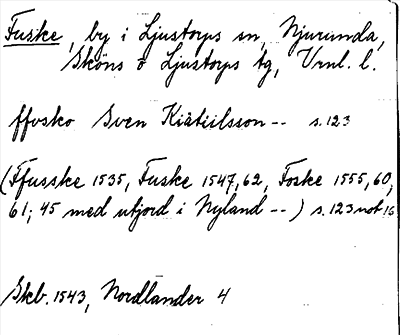 Fuske, by i Ljustorps sn, Njurunda,
Sköns o Ljustorps tg, Vrnl. l.
ffosko Sven Kiätiilsson -- s. 123
(Ffusske 1535, Fuske 1547, 62, Foske 1555, 60,
61; 45 med utjord i Nyland --) s. 123 not 16
Skb. 1543, Nordlander 4